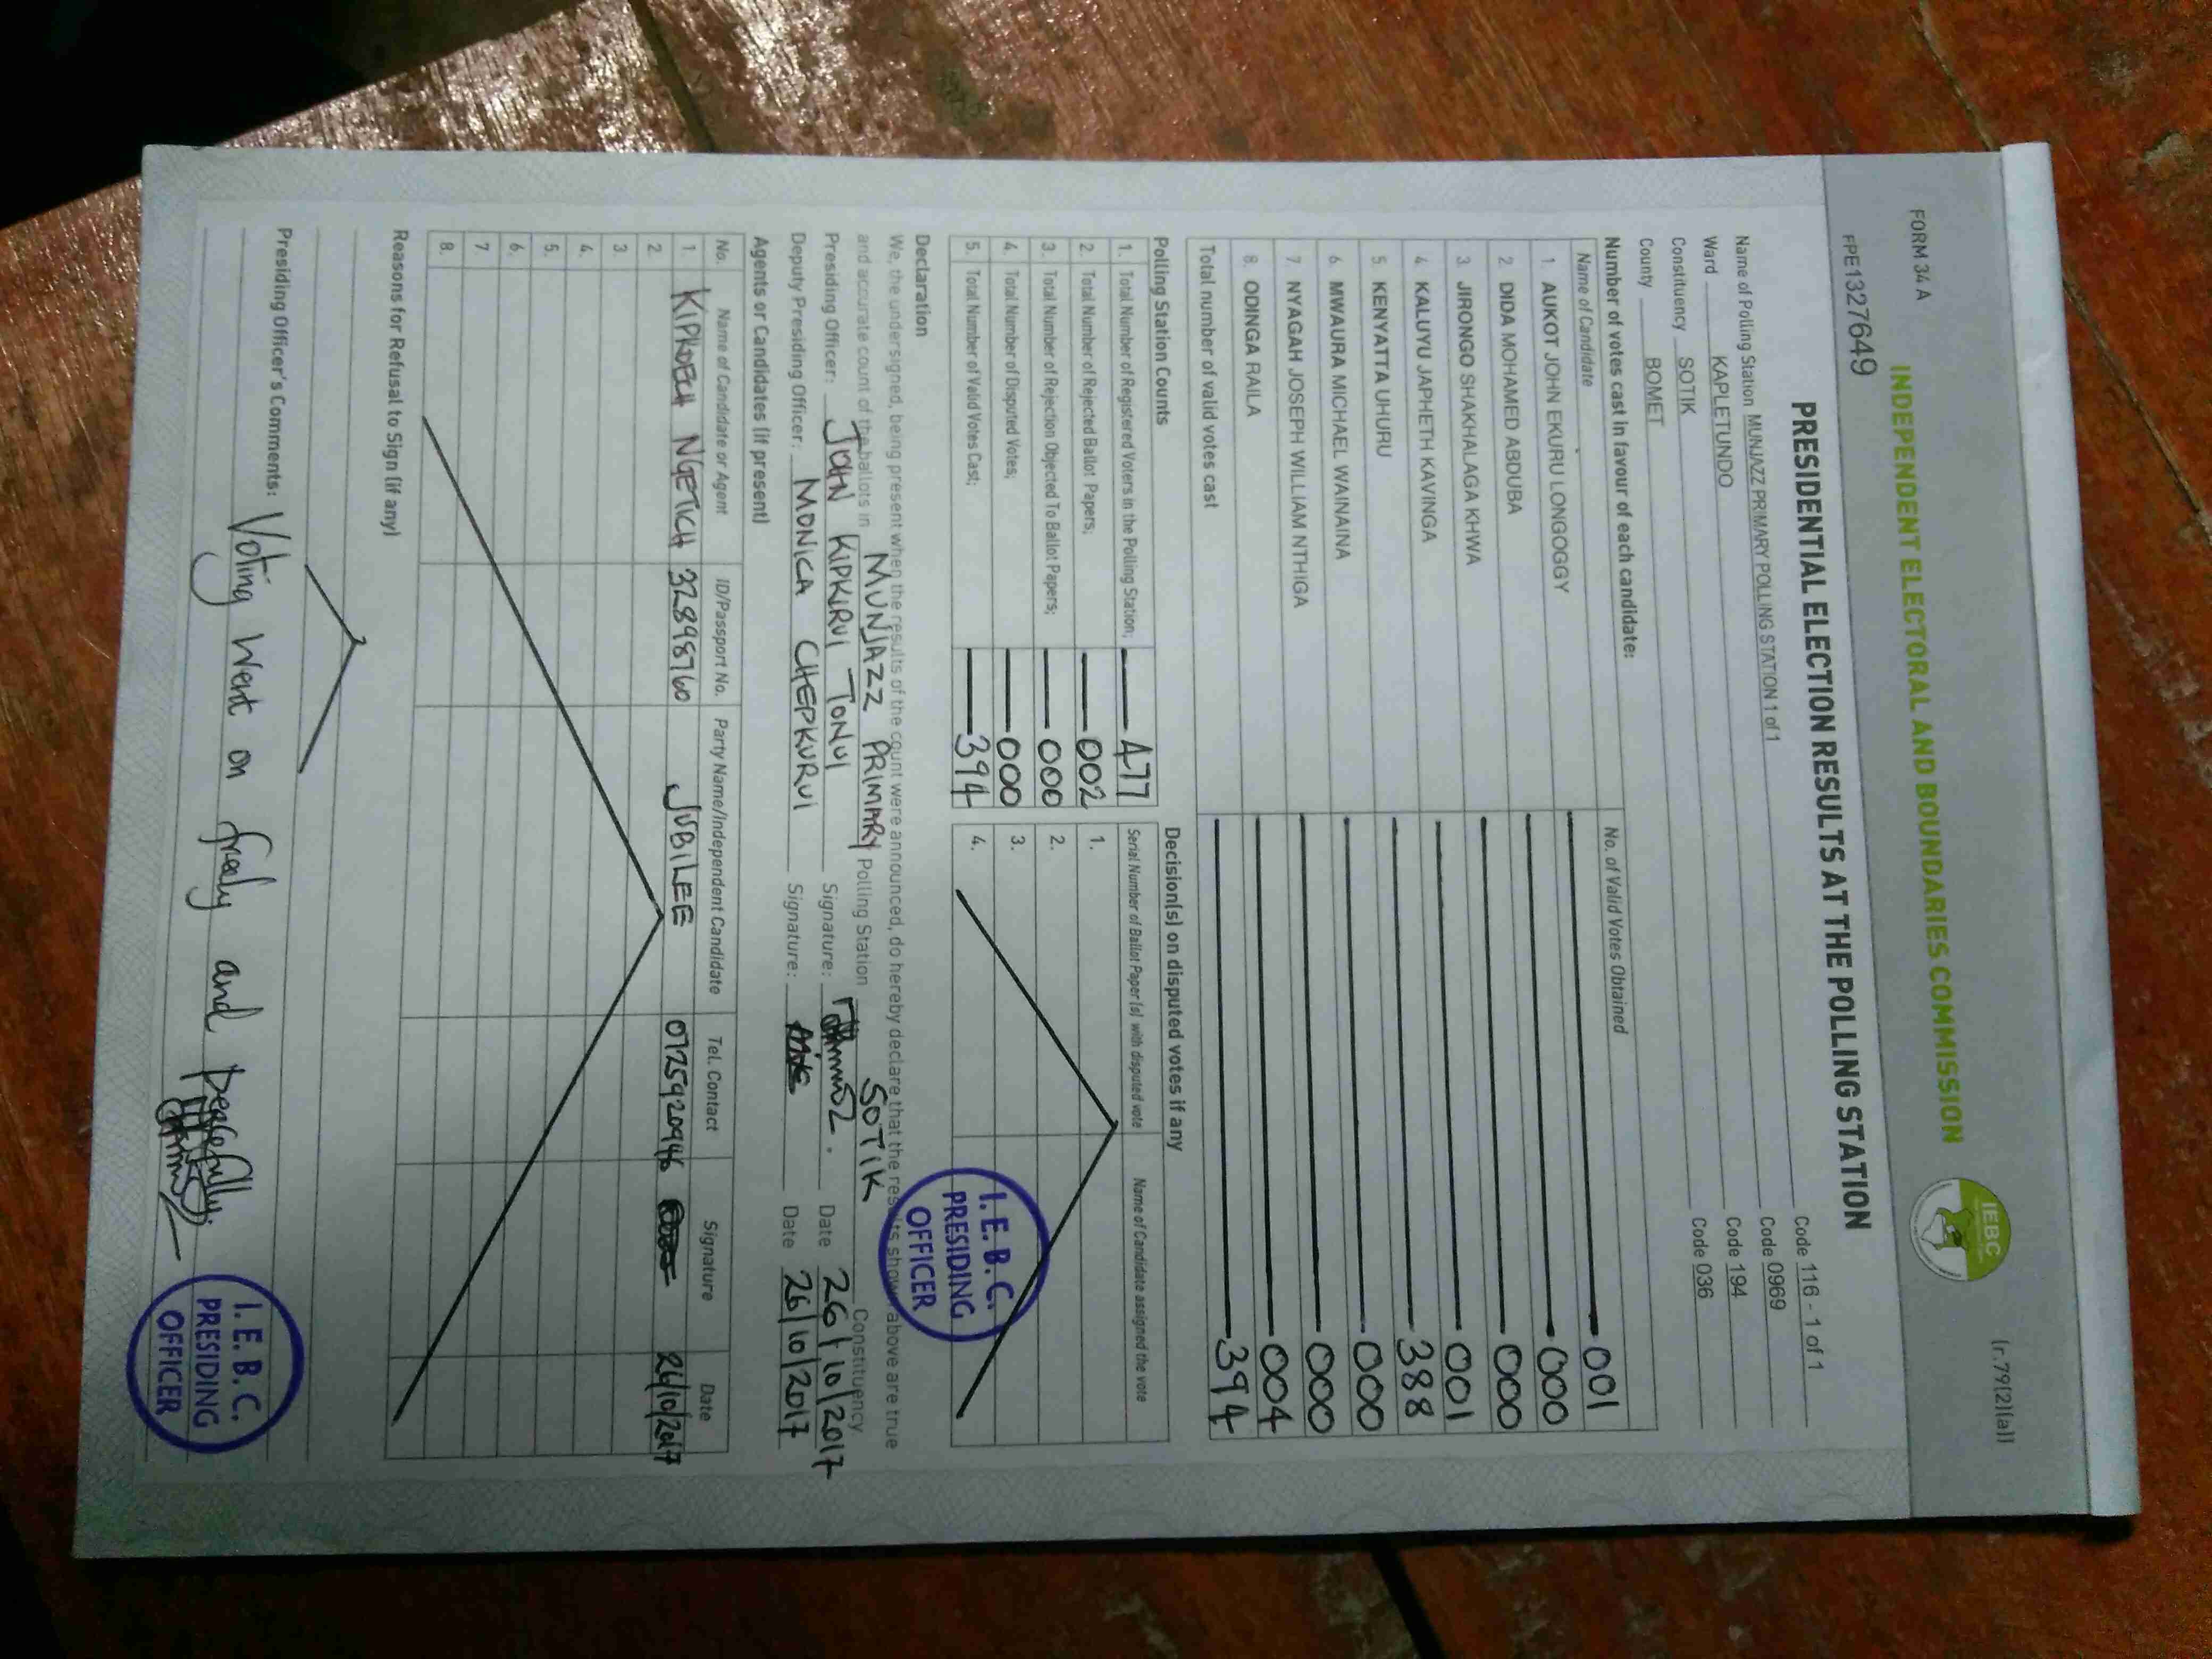 FORM 34 A
(r.79(2)(a))
INDEPENDENT ELECTORAL AND BOUNDARIES COMMISSION
IEBC
FPE1327649
PRESIDENTIAL ELECTION RESULTS AT THE POLLING STATION
Name of Polling Station MUNJAZZ PRIMARY POLLING STATION 1 of 1 Code 116 - 1 of 1
Ward KAPLETUNDO Code 0969
Constituency SOTIK Code 194
County BOMET Code 036
Number of votes cast in favour of each candidate:
Name of Candidate No. of Valid Votes Obtained
1. AUKOT JOHN EKURU LONGOGGY 001
2. DIDA MOHAMED ABDUBA 000
3. JIRONGO SHAKHALAGA KHWA 000
4. KALUYU JAPHETH KAVINGA 001
5. KENYATTA UHURU 388
6. MWAURA MICHAEL WAINAINA 000
7. NYAGAH JOSEPH WILLIAM NTHIGA 000
8. ODINGA RAILA 004
Total number of valid votes cast 394
Polling Station Counts Decision(s) on disputed votes if any
1. Total Number of Registered Voters in the Polling Station; 477
2. Total Number of Rejected Ballot Papers; 002
3. Total Number of Rejection Objected To Ballot Papers; 000
4. Total Number of Disputed Votes; 000
5. Total Number of Valid Votes Cast; 394
Serial Number of Ballot Paper (s) with disputed vote Name of Candidate assigned the vote
1.
2.
3.
4.
I. E. B. C.
PRESIDING
OFFICER
Declaration
We, the undersigned, being present when the results of the count were announced, do hereby declare that the results shown above are true
and accurate count of the ballots in MUNJAZZ PRIMARY Polling Station SOTIK Constituency
Presiding Officer: JOHN KIPKIRUI TONUI Signature: Date 26/10/2017
Deputy Presiding Officer: MONICA CHEPKURUI Signature: Date 26/10/2017
Agents or Candidates (if present)
No. Name of Candidate or Agent ID/Passport No. Party Name/Independent Candidate Tel. Contact Signature Date
1. KIPKOECH NGETICH 32898760 JUBILEE 0725920946 26/10/2017
2.
3.
4.
5.
6.
7.
8.
Reasons for Refusal to Sign (if any)
Presiding Officer's Comments: Voting went on freely and peacefully.
I. E. B. C.
PRESIDING
OFFICER